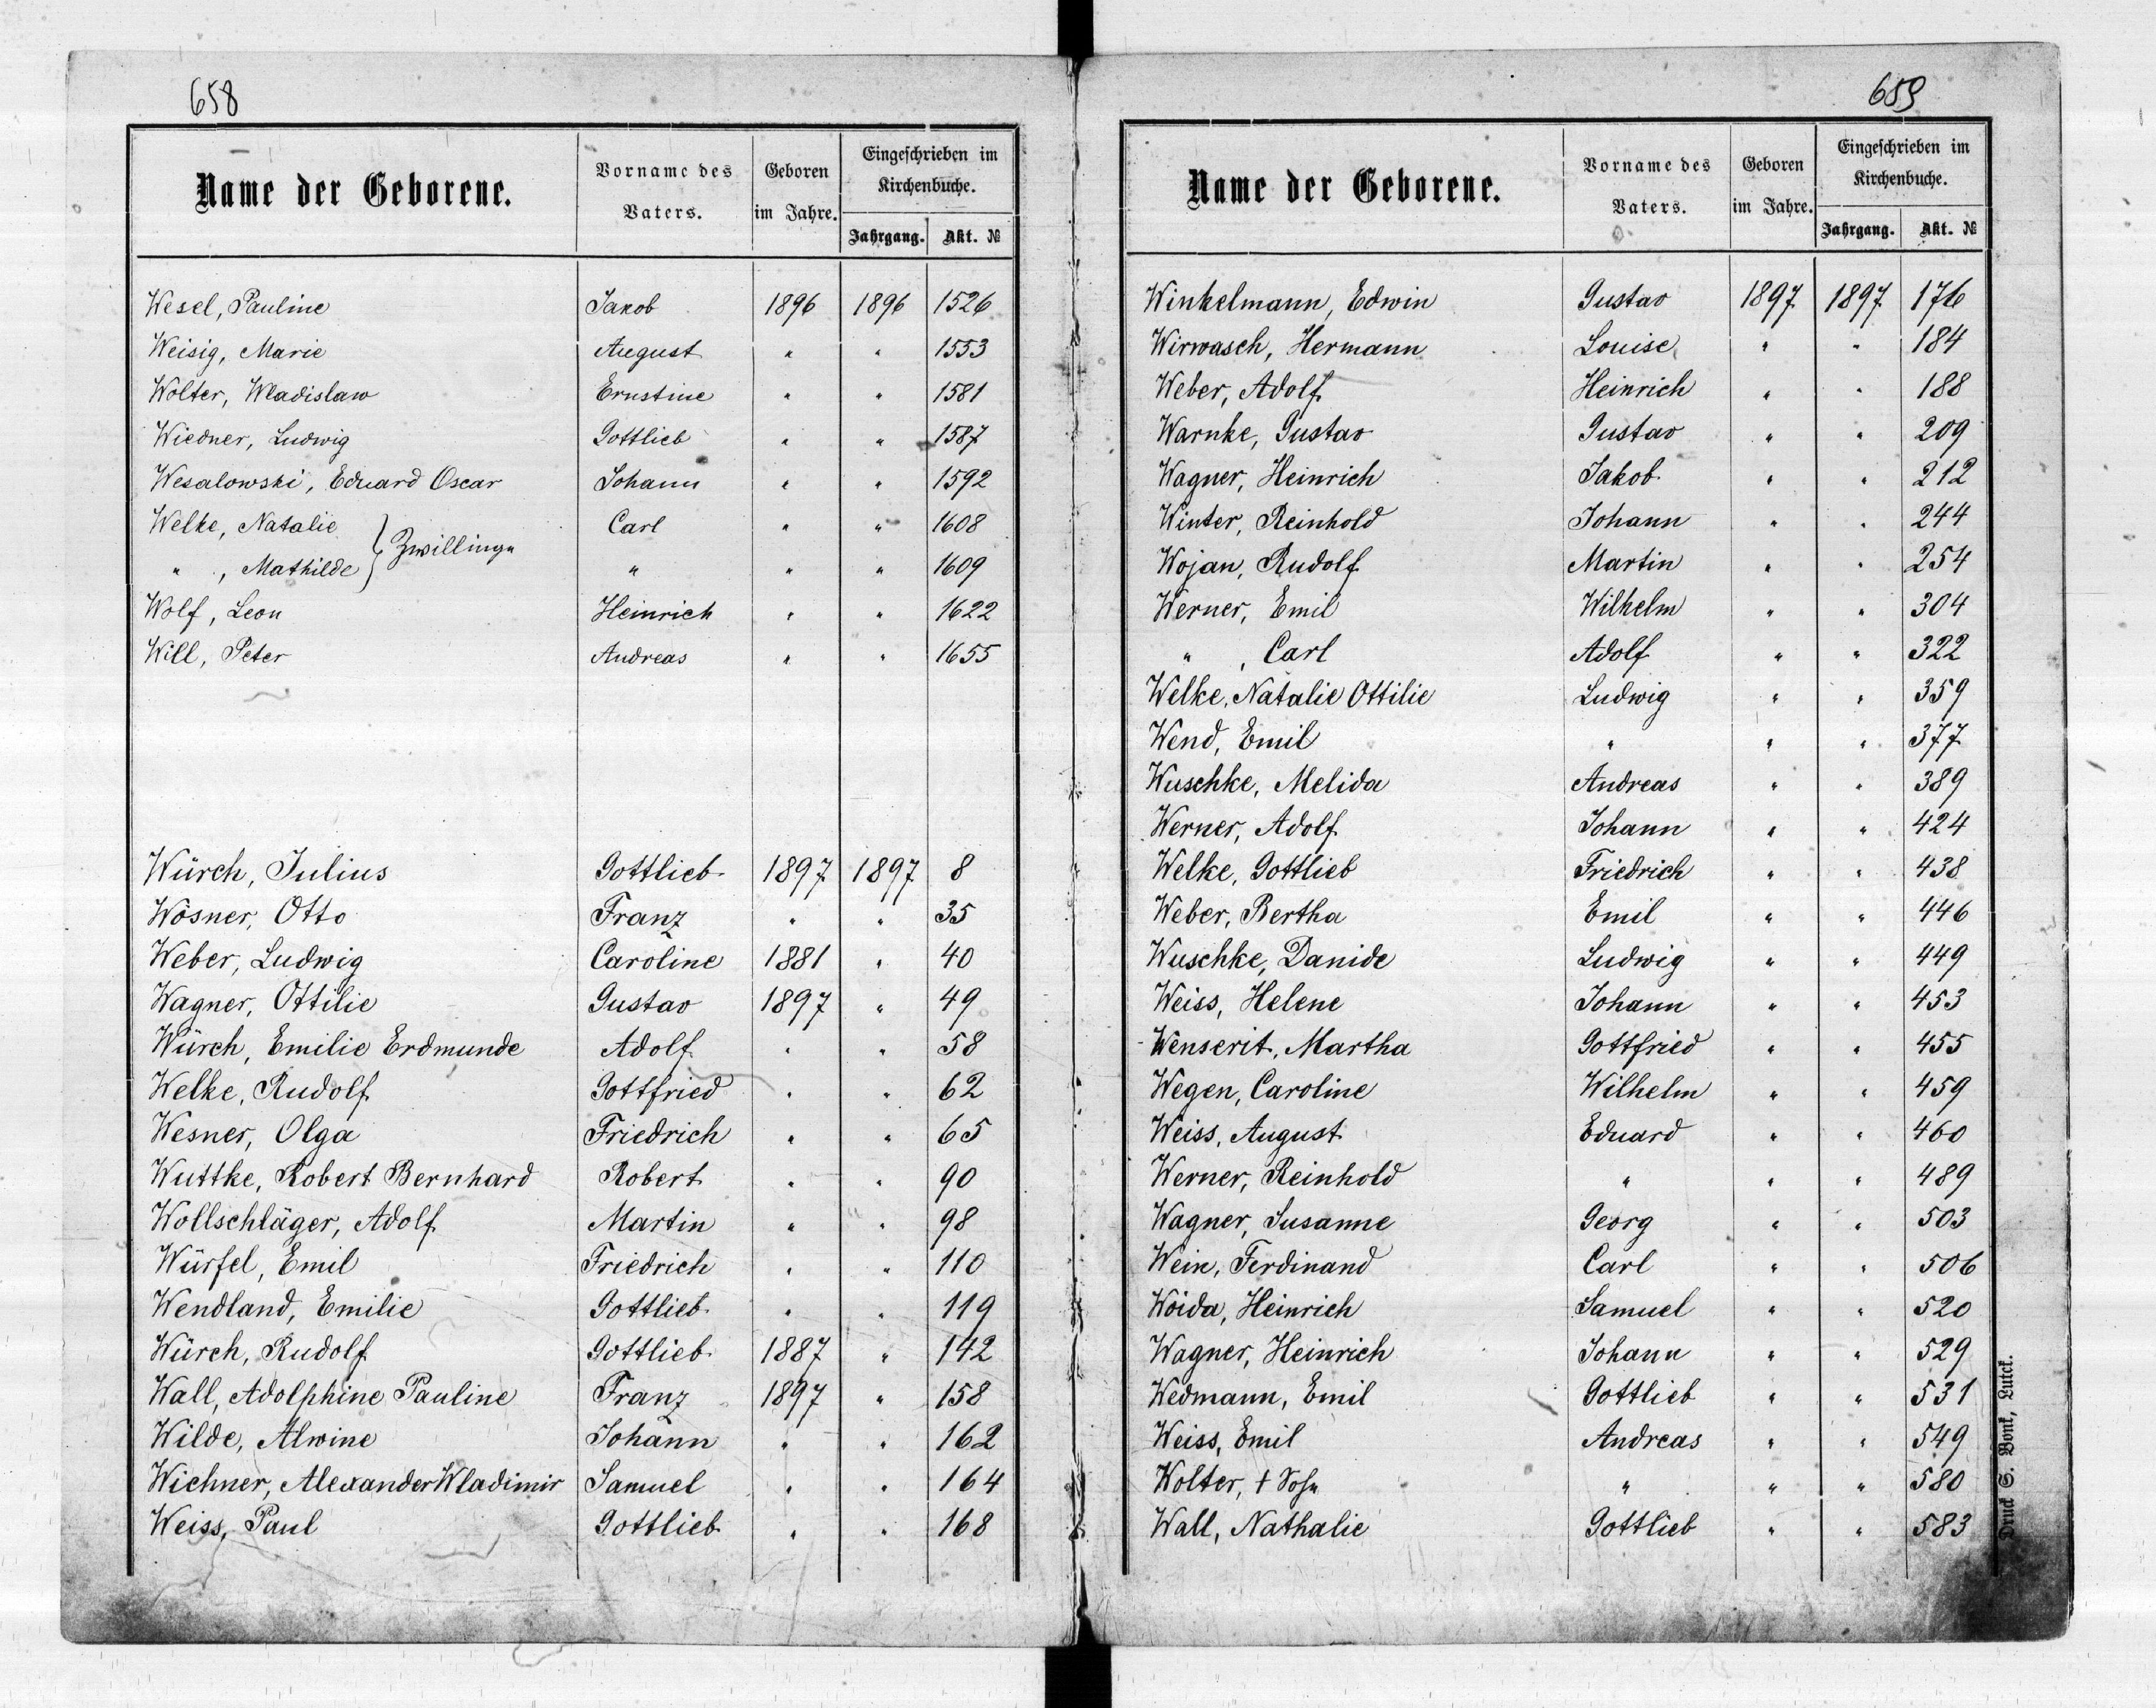 658
Name der Geborene. Vorname des Vaters. Geboren im Jahre. Eingeschrieben im Kirchenbuche. Jahrgang. Akt. №
Wesel, Pauline Jakob 1896 1896 1526
Weisig, Marie August " " 1553
Wolter, Wladislaw Ernstine " " 1581
Wiedner, Ludwig Gottlieb " " 1587
Wesalowski, Eduard Oscar Johann " " 1592
Welke, Natalie } Zwillinge Carl " " 1608
" , Mathilde } " " " 1609
Wolf, Leon Heinrich " " 1622
Will, Peter Andreas " " 1655
Würch, Julius Gottlieb 1897 1897 8
Wösner, Otto Franz " " 35
Weber, Ludwig Caroline 1881 " 40
Wagner, Ottilie Gustav 1897 " 49
Würch, Emilie Erdmunde Adolf " " 58
Welke, Rudolf Gottfried " " 62
Wesner, Olga Friedrich " " 65
Wuttke, Robert Bernhard Robert " " 90
Wollschläger, Adolf Martin " " 98
Würfel, Emil Friedrich " " 110
Wendland, Emilie Gottlieb " " 119
Würch, Rudolf Gottlieb 1887 " 142
Wall, Adolphine Pauline Franz 1897 " 158
Wilde, Alwine Johann " " 162
Wichner, Alexander Wladimir Samuel " " 164
Weiss, Paul Gottlieb " " 168
659
Name der Geborene. Vorname des Vaters. Geboren im Jahre. Eingeschrieben im Kirchenbuche. Jahrgang. Akt. №
Winkelmann, Edwin Gustav 1897 1897 176
Wirwasch, Hermann Louise " " 184
Weber, Adolf Heinrich " " 188
Warnke, Gustav Gustav " " 209
Wagner, Heinrich Jakob " " 212
Winter, Reinhold Johann " " 244
Wojan, Rudolf Martin " " 254
Werner, Emil Wilhelm " " 304
" , Carl Adolf " " 322
Welke, Natalie Ottilie Ludwig " " 359
Wend, Emil " " " 377
Wuschke, Melida Andreas " " 389
Werner, Adolf Johann " " 424
Welke, Gottlieb Friedrich " " 438
Weber, Bertha Emil " " 446
Wuschke, Danide Ludwig " " 449
Weiss, Helene Johann " " 453
Wenserit, Martha Gottfried " " 455
Wegen, Caroline Wilhelm " " 459
Weiss, August Eduard " " 460
Werner, Reinhold " " " 489
Wagner, Susanne Georg " " 503
Wein, Ferdinand Carl " " 506
Woida, Heinrich Samuel " " 520
Wagner, Heinrich Johann " " 529
Wedmann, Emil Gottlieb " " 531
Weiss, Emil Andreas " " 549
Wolter, † Sohn " " " 580
Wall, Nathalie Gottlieb " " 583
Druck S. Bonk, Luck.